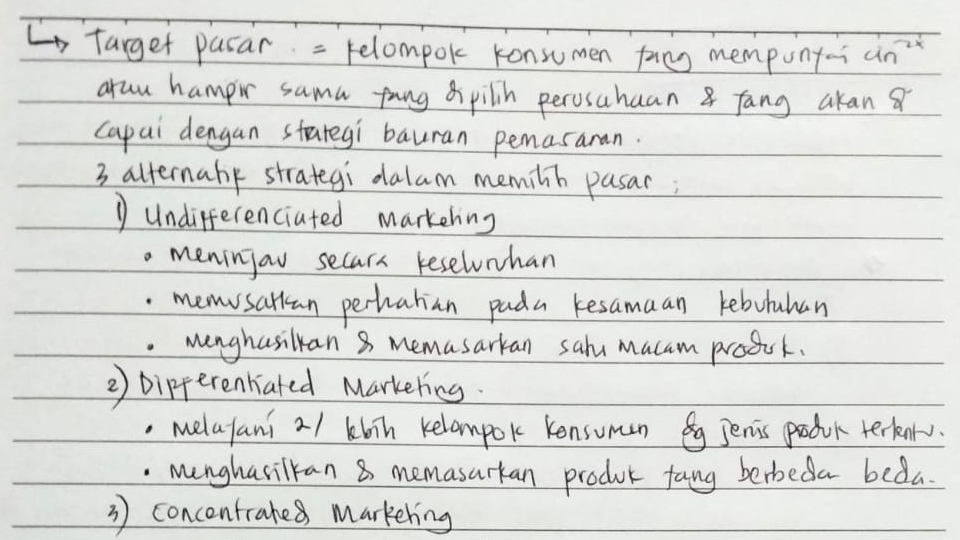 ↳ Target pasar . = kelompok konsumen yang mempunyai ciri²x
atau hampir sama yang dipilih perusahaan & yang akan di
capai dengan strategi bauran pemasaran .
3 alternatif strategi dalam memilih pasar ;
1) Undifferenciated marketing
• meninjau secara keseluruhan
• memusatkan perhatian pada kesamaan kebutuhan
• Menghasilkan & Memasarkan satu macam produk.
2) Differentiated Marketing .
• Melayani 2/ lebih kelompok konsumen dg jenis produk tertentu.
• menghasilkan & memasarkan produk yang berbeda beda.
3) Concentrated Marketing